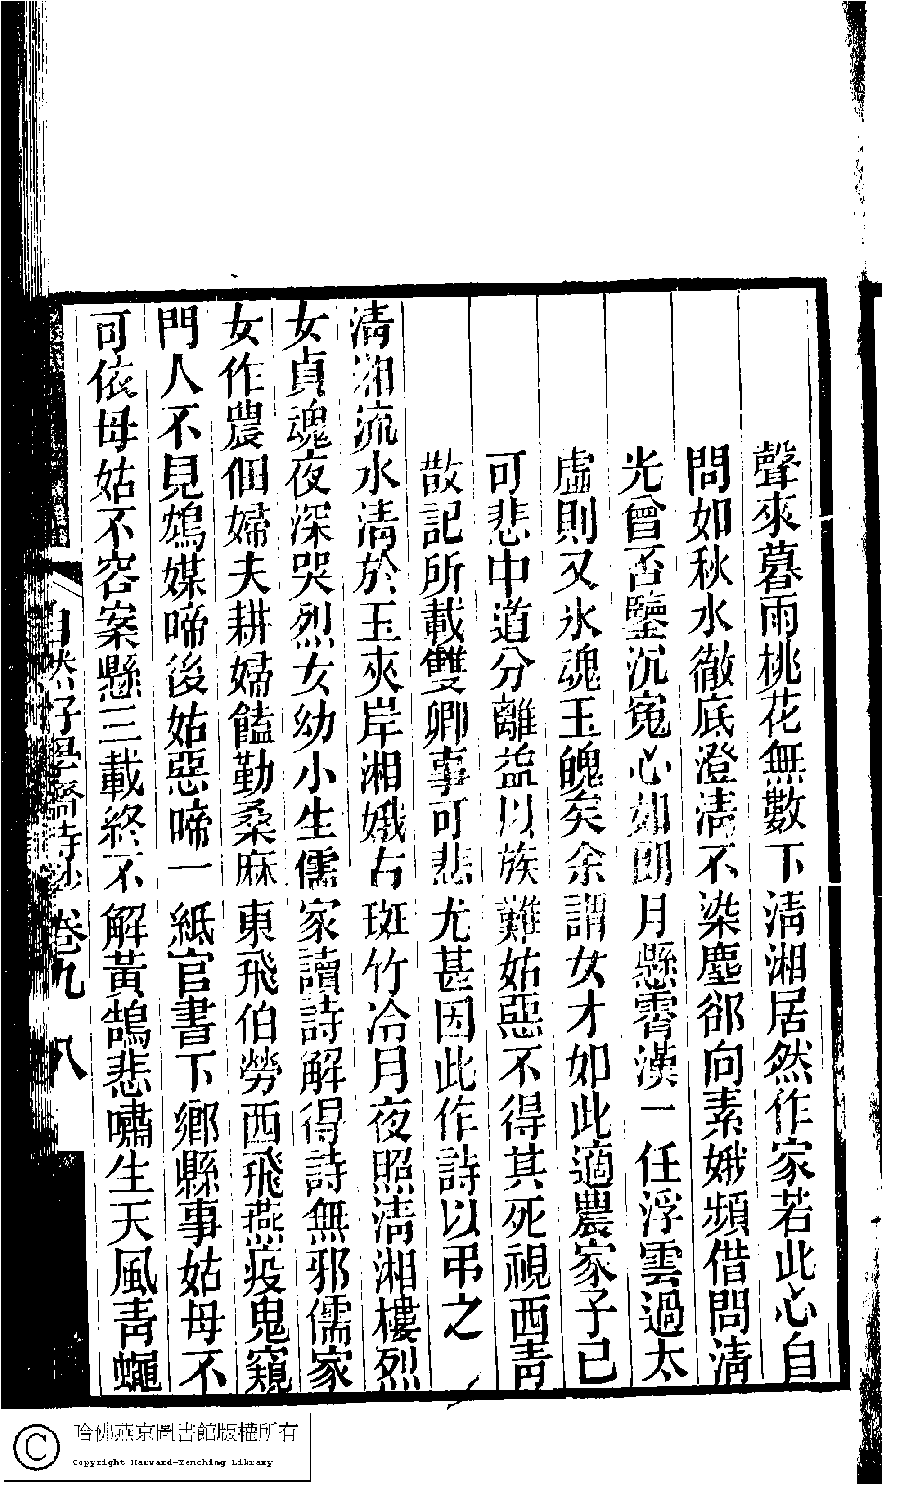 聲來暮雨桃花無數下淸湘居然作家若此心自
問如秋水徹底澄淸不染塵郤向素娥頻借問淸
光曾否鑒沉寃心如朗月懸霄漢一任浮雲過太
虛則又氷魂玉魄矣余謂女才如此適農家子已
可悲中道分離益以族難姑惡不得其死視西靑
散記所載雙卿事可悲尤甚因此作詩以弔之
淸湘流水淸於玉夾岸湘娥占斑竹冷月夜照淸湘樓烈
女貞魂夜深哭烈女幼小生儒家讀詩解得詩無邪儒家
女作農佃婦夫耕婦饁勤桑麻東飛伯勞西飛燕疫鬼窺
門人不見鴆媒啼後姑惡啼一紙官書下鄉縣事姑母不
可依母姑不容案懸三載終不解黃鵠悲嘯生天風靑蠅
自然好學齋詩鈔 卷九 八
哈佛燕京圖書館版權所有
Copyright Harvard-Yenching Library